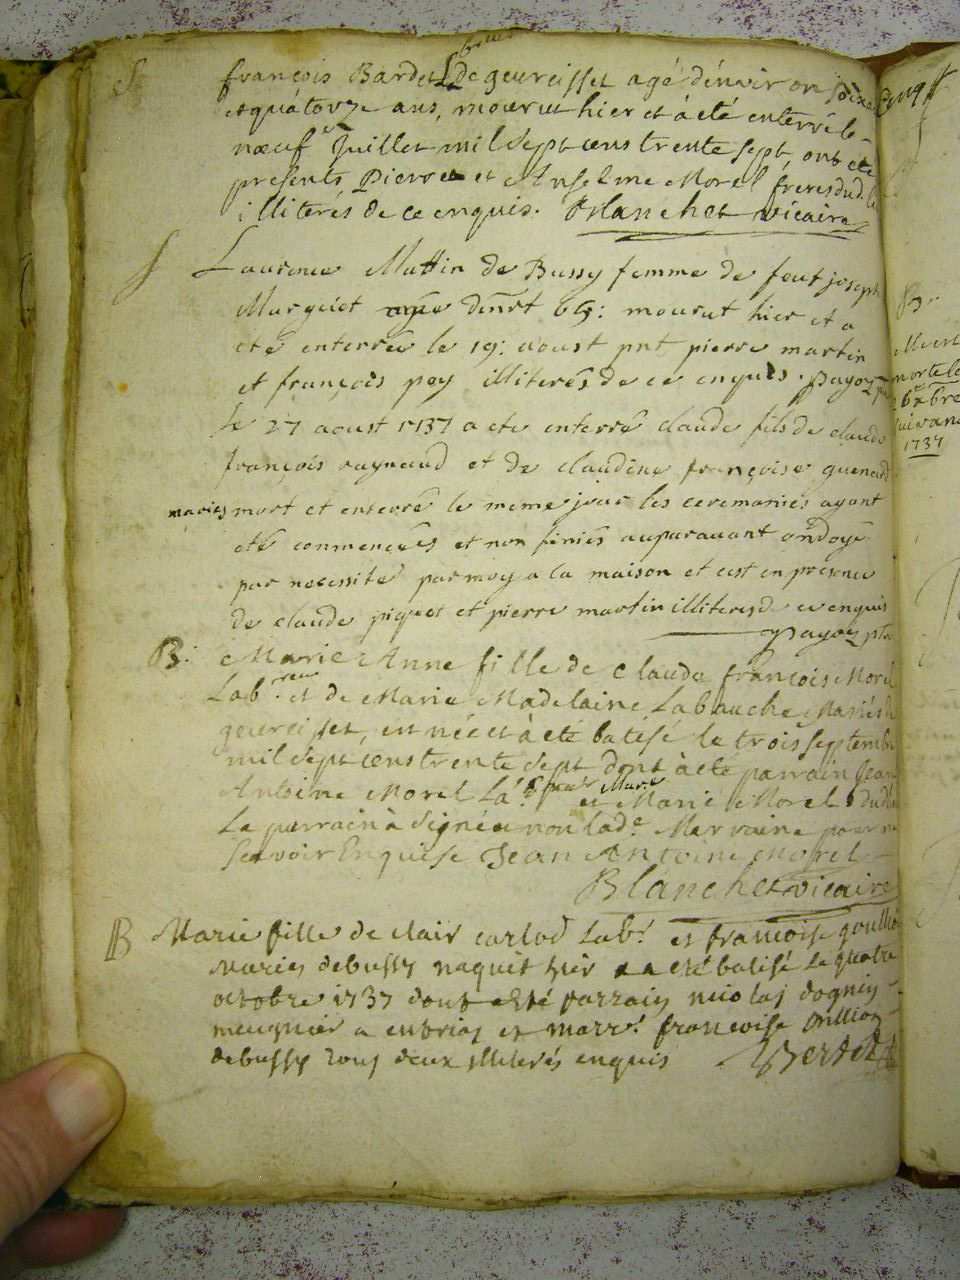 S françois Bardet L. breur de geureisset agé d'environ soixa
et quátorze ans, mourut hier et à eté enterré le
nœuf Juillet mil sept cens trente sept, ont été
presents Pierre et Anselme Morel freres dud. l
illiterés de ce enquis. Blanchet vicaire
S Laurence Mattin de Bussy femme de feut joseph
Murguet agée denvt 65: mourut hier et a
eté enterrée le 19: aoust pnt pierre martin
et françois pey illiterés de ce enquis. payoz
le 27 aoust 1737 a ete enterré claude fils de claude
françois raynaud et de claudine françoise guenard
mariés mort et enterré le meme jour les ceremonies ayant
eté commencées et non finies auparavant ondoyé
par necessité par moy a la maison et cest en presence
de claude piquet et pierre martin illiteres de ce enquis
payoz ptre
B. Marie Anne fille de claude françois Morel
Lab. reur et de Marie Madelaine Labauche Mariés d
geureisset, est né et à eté batisé le trois septembre
mil sept cens trente sept dont à eté parrain Jean
Antoine Morel et Marie Morel dud
Le parrain à signé et non lad.e Marraine pour ne
scavoir Enquise Jean Antoine Morel
Blanchet vicaire
B Marie fille de clair carlod Labr. et francoise goullio
Maries debussy naquit hier a eté batisé Le quatre
octobre 1737 dont a été parrain nicolas dognin
meugnier a eubrias et marr. francoise
debussy tous deux illiterés enquis Berdet